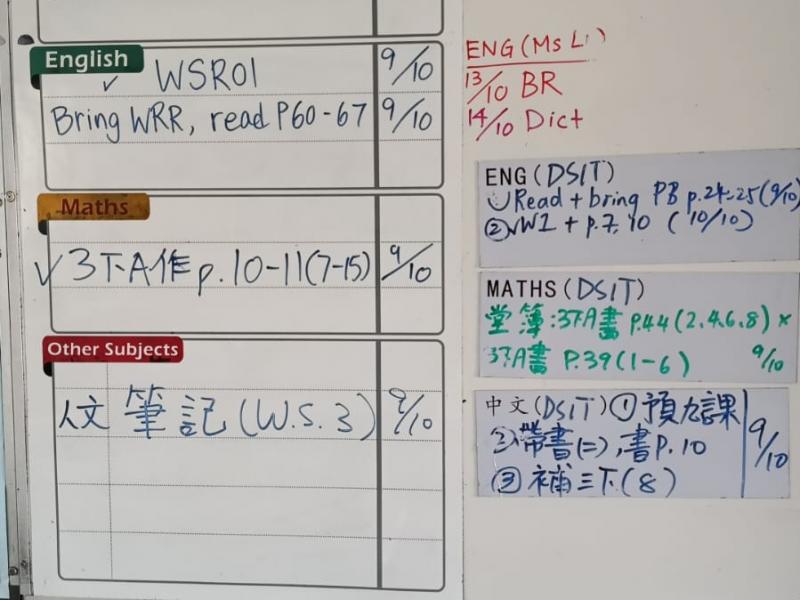 English
✓ WSR01 9/10
Bring WRR, read P60-67 9/10
Maths
✓ 3下A作 p.10-11(7-15) 9/10
Other Subjects
人文 筆記(W.S. 3) 9/10
ENG (Ms Li)
13/10 BR
14/10 Dict
ENG (DSIT)
Read + bring PB p.24-25 (9/10)
② W1 + p.7, 10 (10/10)
MATHS (DSIT)
堂簿:3下A書 p.44 (2.4.6.8) ×
3下A書 P.39 (1-6) 9/10
中文 (DSIT) ① 預九課 9/10
② 帶書(二), 書p.10
③ 補三下(8)